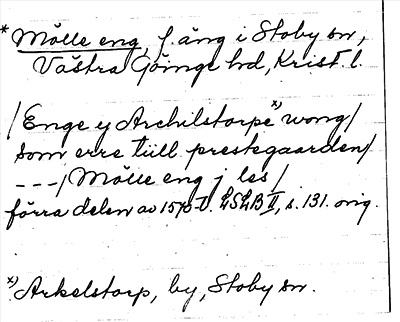 * Mölle eng, f. äng i Stoby sn,
Västra Göinge hd, Krist. l.
/Enge y Archilstorpe x) wong/
som erre tiill prestegaarden/
---/Mölle eng j les/
förra delen av 1570-t. LSLB II, s. 131. orig.
x) Arkelstorp, by, Stoby sn.